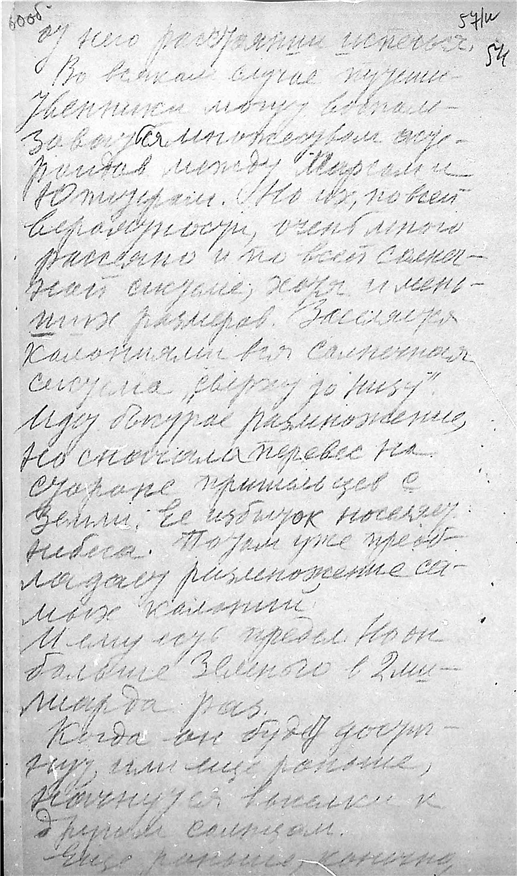 600б
57/и
54
от него расстоянии истечья.
Во всяком случае путеше-
ственники могут восполь-
зоваться множеством асте-
роидов между Марсом и
Юпитером. Но их, по всей
вероятности, очень много
рассеяно и по всей солнеч-
ной системе, хотя и мень-
ших размеров. Заселяется
колониями вся солнечная
система „сверху до низу".
Идет быстрое размножение,
но сначала перевес на
стороне пришельцев с
Земли. Ее избыток поселяет
небеса. Потом уже преоб-
ладает размножение са-
мых колоний.
И ему есть предел. Но он
больше Земного в 2 ми-
лиарда раз.
Когда он будет достиг-
нут, или еще раньше,
начнутся высылки к
другим солнцам.
Еще раньше, конечно,